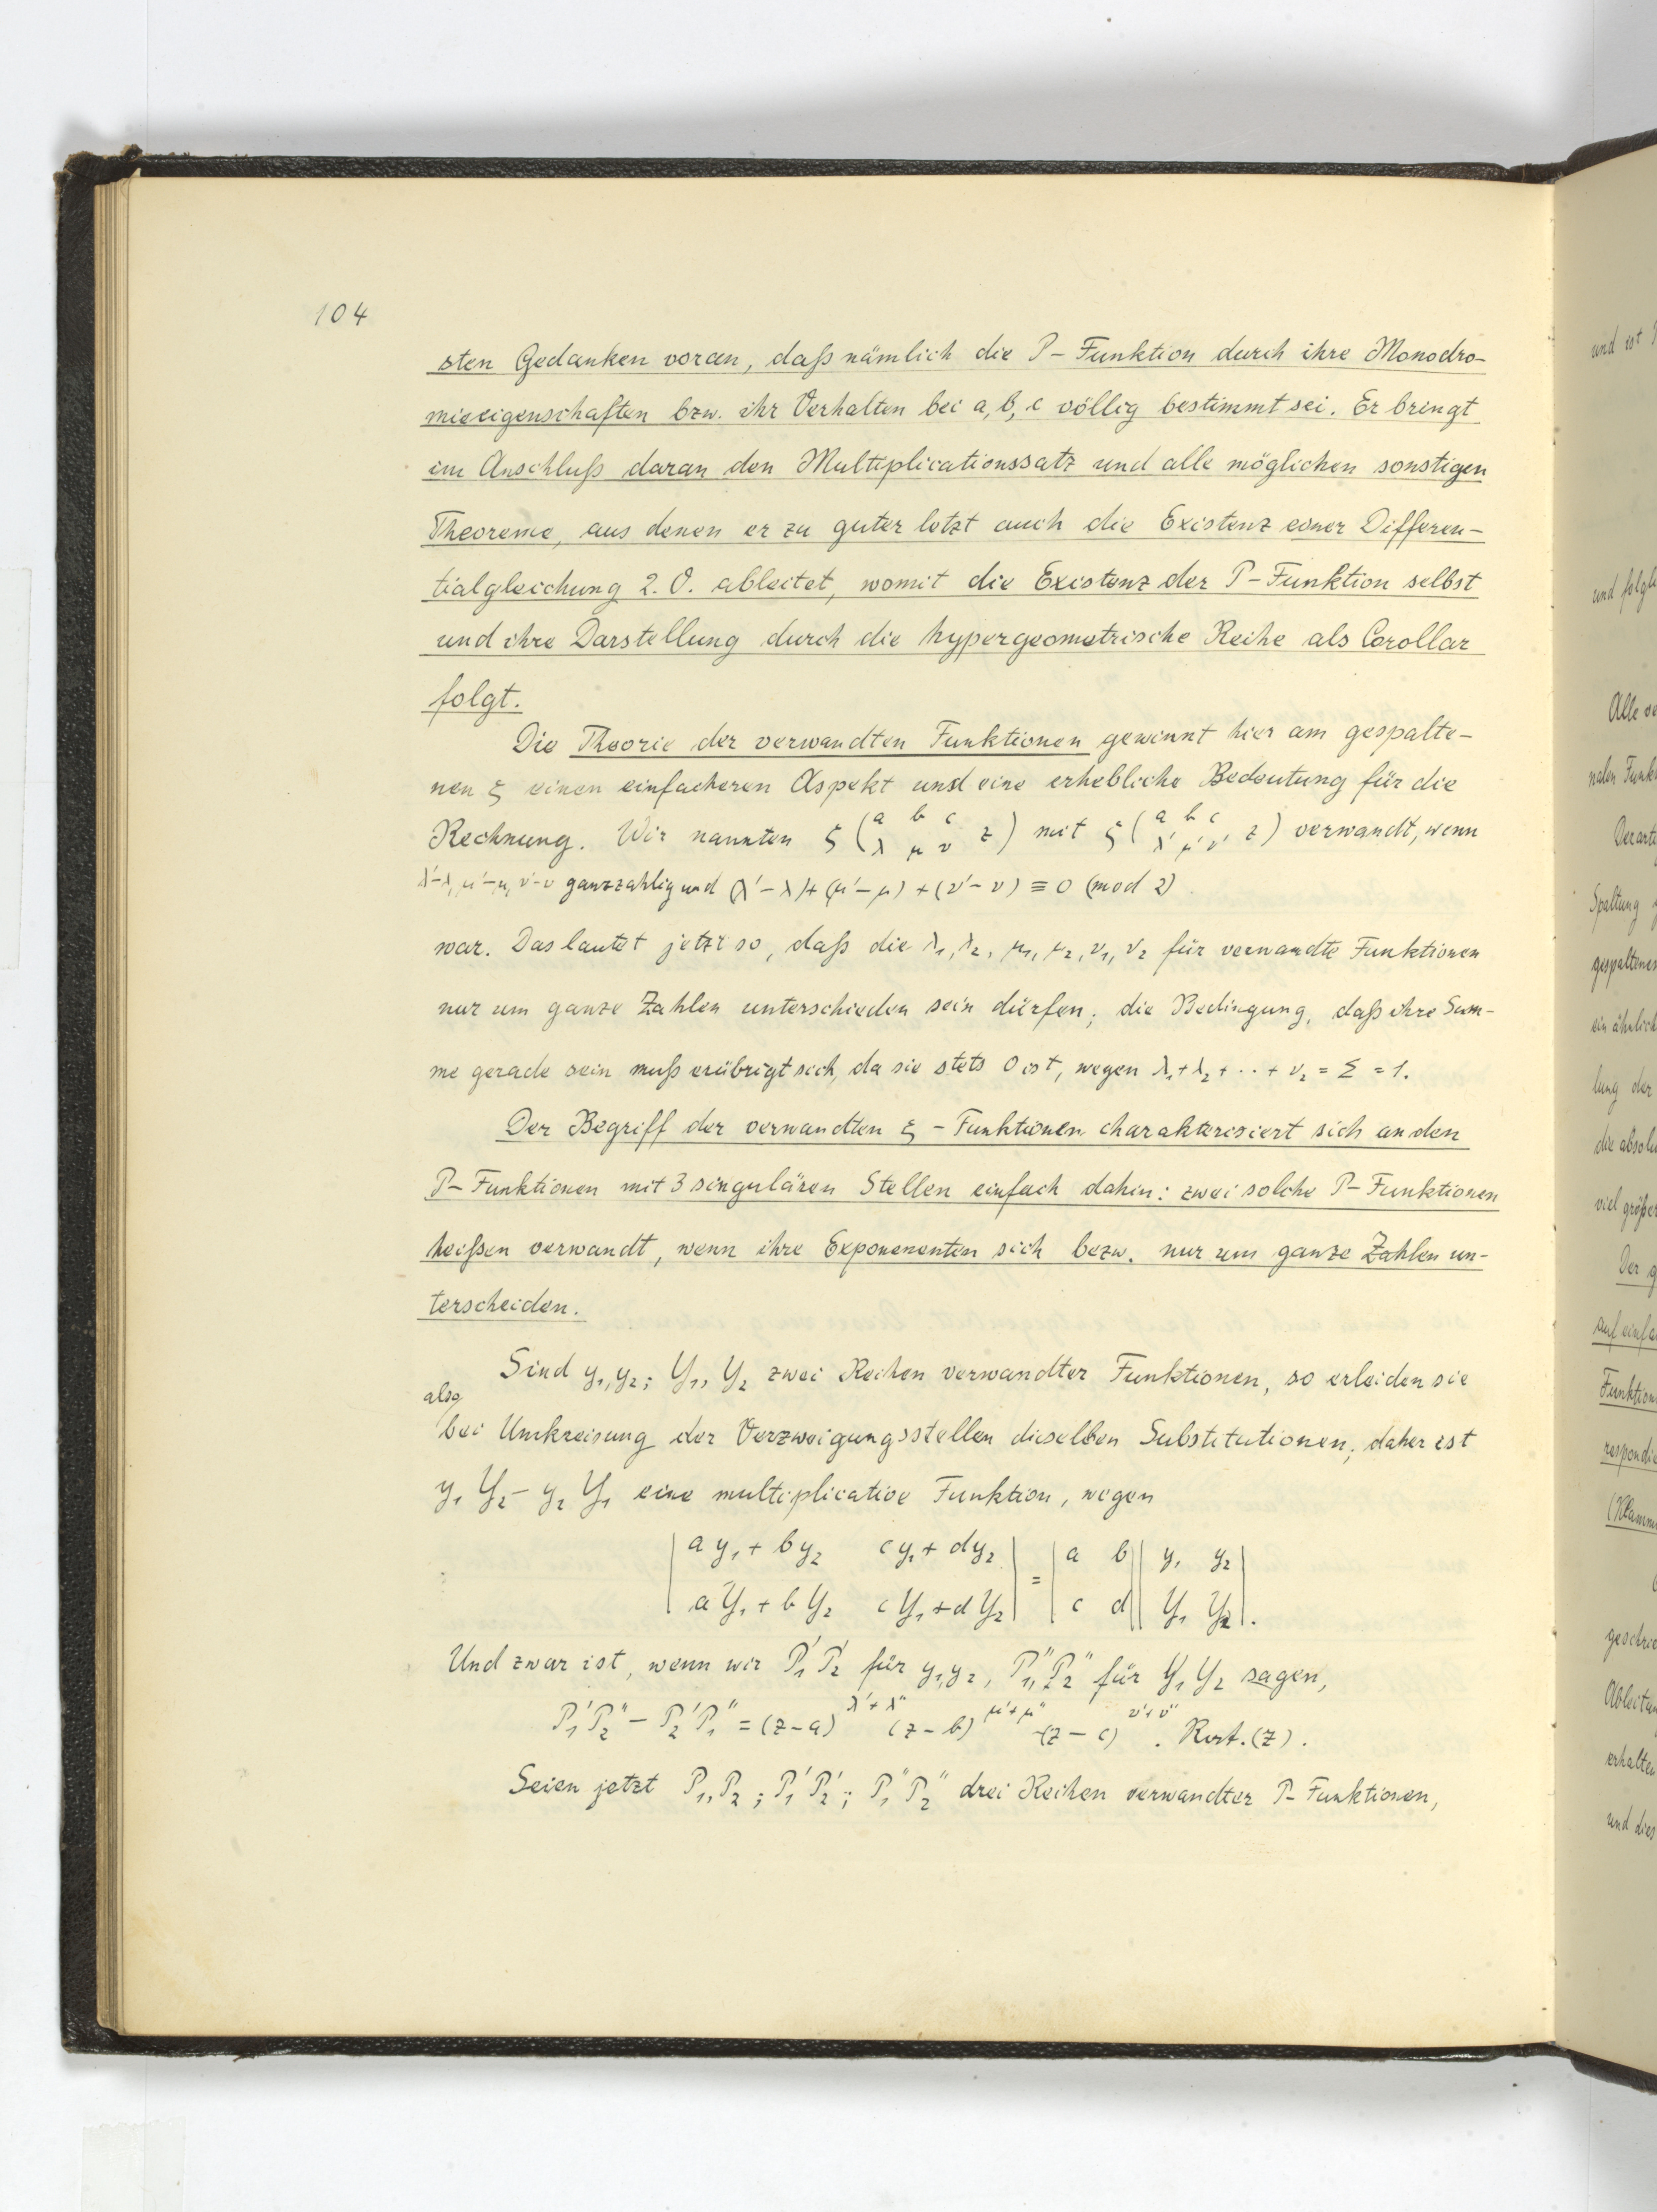 104
sten Gedanken voran, daß nämlich die P-Funktion durch ihre Monodro-
mieeigenschaften bzw. ihr Verhalten bei a, b, c völlig bestimmt sei. Er bringt
im Anschluß daran den Multiplicationssatz und alle möglichen sonstigen
Theoreme, aus denen er zu guter letzt auch die Existenz einer Differen-
tialgleichung 2. O. ableitet, womit die Existenz der P-Funktion selbst
und ihre Darstellung durch die hypergeometrische Reihe als Corollar
folgt.
Die Theorie der verwandten Funktionen gewinnt hier am gespalte-
nen ξ einen einfacheren Aspekt und eine erhebliche Bedeutung für die
Rechnung. Wir nannten ξ (a b c / λ μ ν z) mit ξ (a b c / λ' μ' ν' z) verwandt, wenn
λ'-λ, μ'-μ, ν'-ν ganzzahlig und (λ'-λ)+(μ'-μ)+(ν'-ν) ≡ 0 (mod 2)
war. Das lautet jetzt so, daß die λ₁, λ₂, μ₁, μ₂, ν₁, ν₂ für verwandte Funktionen
nur um ganze Zahlen unterschieden sein dürfen; die Bedingung, daß ihre Sum-
me gerade sein muß erübrigt sich, da sie stets 0 ist, wegen λ₁+λ₂+··+ν₂ = Σ = 1.
Der Begriff der verwandten ξ-Funktionen charakterisiert sich an den
P-Funktionen mit 3 singulären Stellen einfach dahin: zwei solche P-Funktionen
heißen verwandt, wenn ihre Exponenenten sich bezw. nur um ganze Zahlen un-
terscheiden.
Sind y₁, y₂; Y₁, Y₂ zwei Reihen verwandter Funktionen, so erleiden sie
also
bei Umkreisung der Verzweigungsstellen dieselben Substitutionen; daher ist
y₁ Y₂ - y₂ Y₁ eine multiplicative Funktion, wegen
| ay₁ + by₂ cy₁ + dy₂ | = | a b | | y₁ y₂ |
| aY₁ + bY₂ cY₁ + dY₂ | | c d | | Y₁ Y₂ |.
Und zwar ist, wenn wir P₁' P₂' für y₁, y₂, P₁'', P₂'' für Y₁ Y₂ sagen,
P₁'P₂'' - P₂'P₁'' = (z-a)^{λ'+λ''} (z-b)^{μ'+μ''} (z-c)^{ν'+ν''} . Rat.(z).
Seien jetzt P₁, P₂; P₁' P₂'; P₁'' P₂'' drei Reihen verwandter P-Funktionen,
und ist
und folgl
Alle ve
nalen Funk
Derarti
Spaltung
gespaltenen
ein ähnlich
lung der
die absolu
viel größer
Der g
auf einfa
Funktion
respondie
(Klamm
geschrie
Ableitun
erhalten
und dies